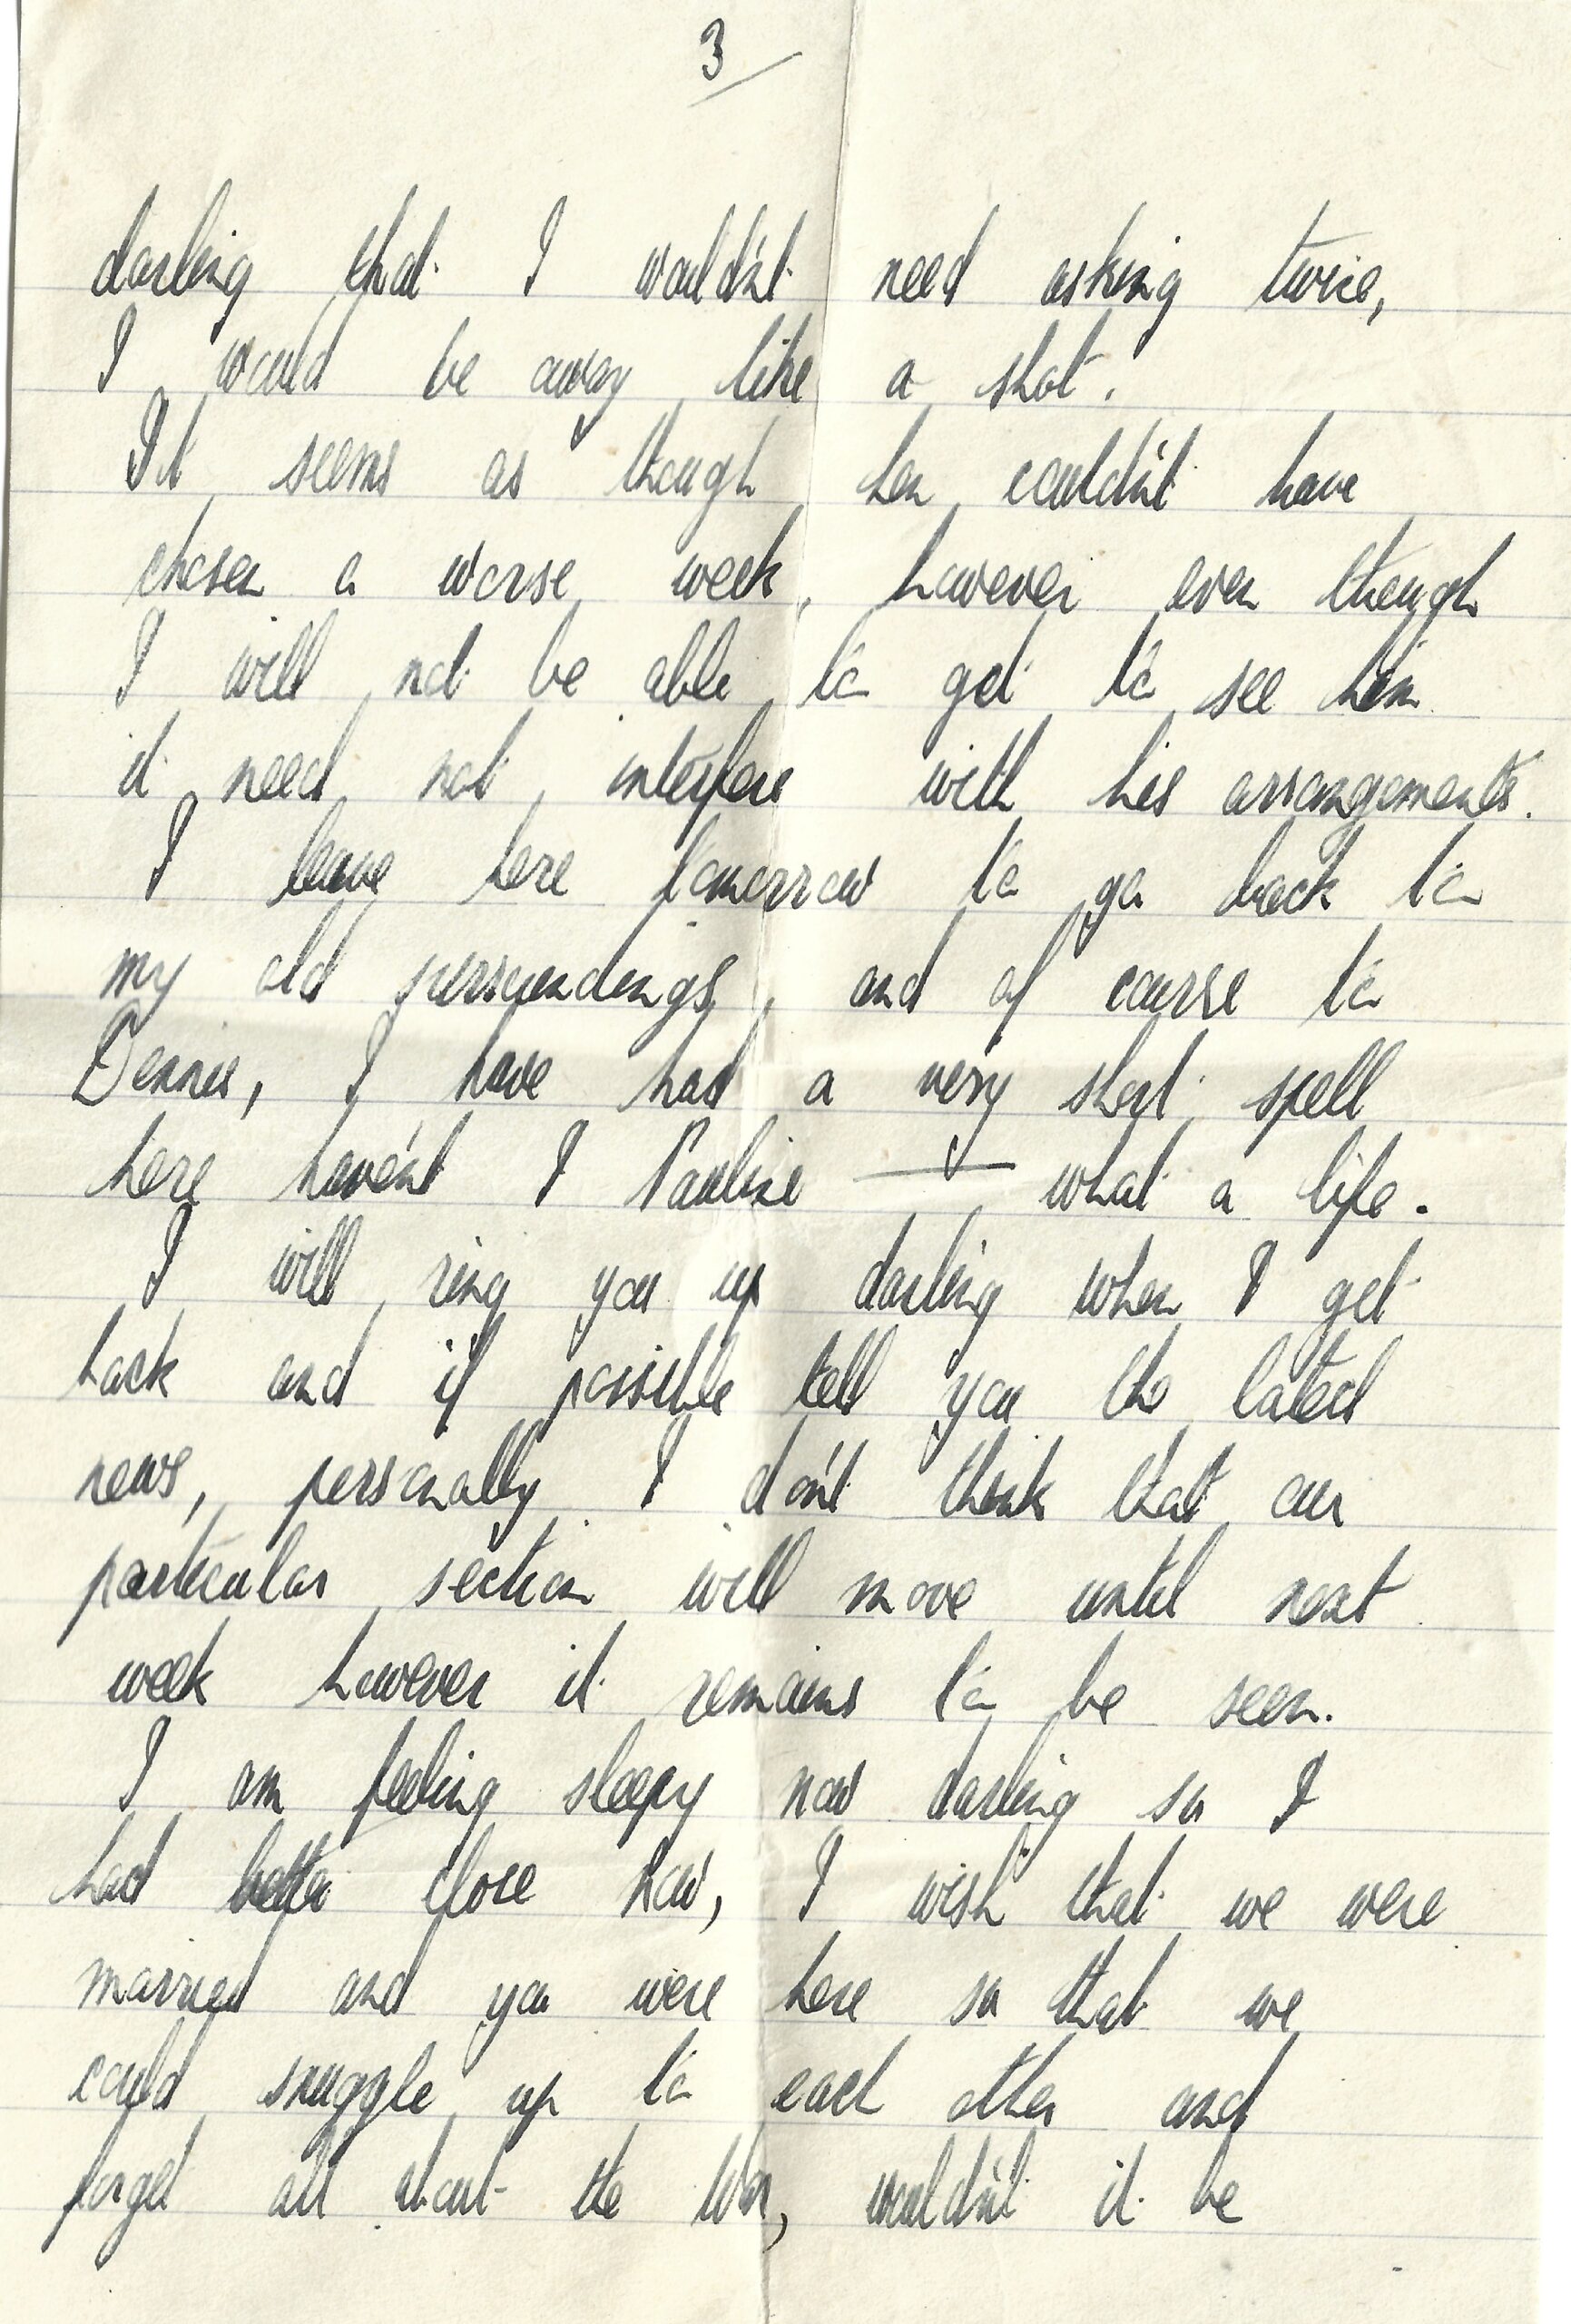 3
darling that I would'nt need asking twice,
I would be away like a shot.
It seems as though he could'nt have
chosen a worse week, however even though
I will not be able to get to see him
it need not interfere with his arrangements.
I leave here tomorrow to go back to
my old surroundings, and of course to
Dennis, I have had a very short spell
here have'nt I Pauline — what a life.
I will ring you up darling when I get
back and if possible tell you the latest
news, personally I do'nt think that our
particular section will move until next
week however it remains to be seen.
I am feeling sleepy now darling so I
had better close now, I wish that we were
married and you were here so that we
could snuggle up to each other and
forget all about the War, would'nt it be